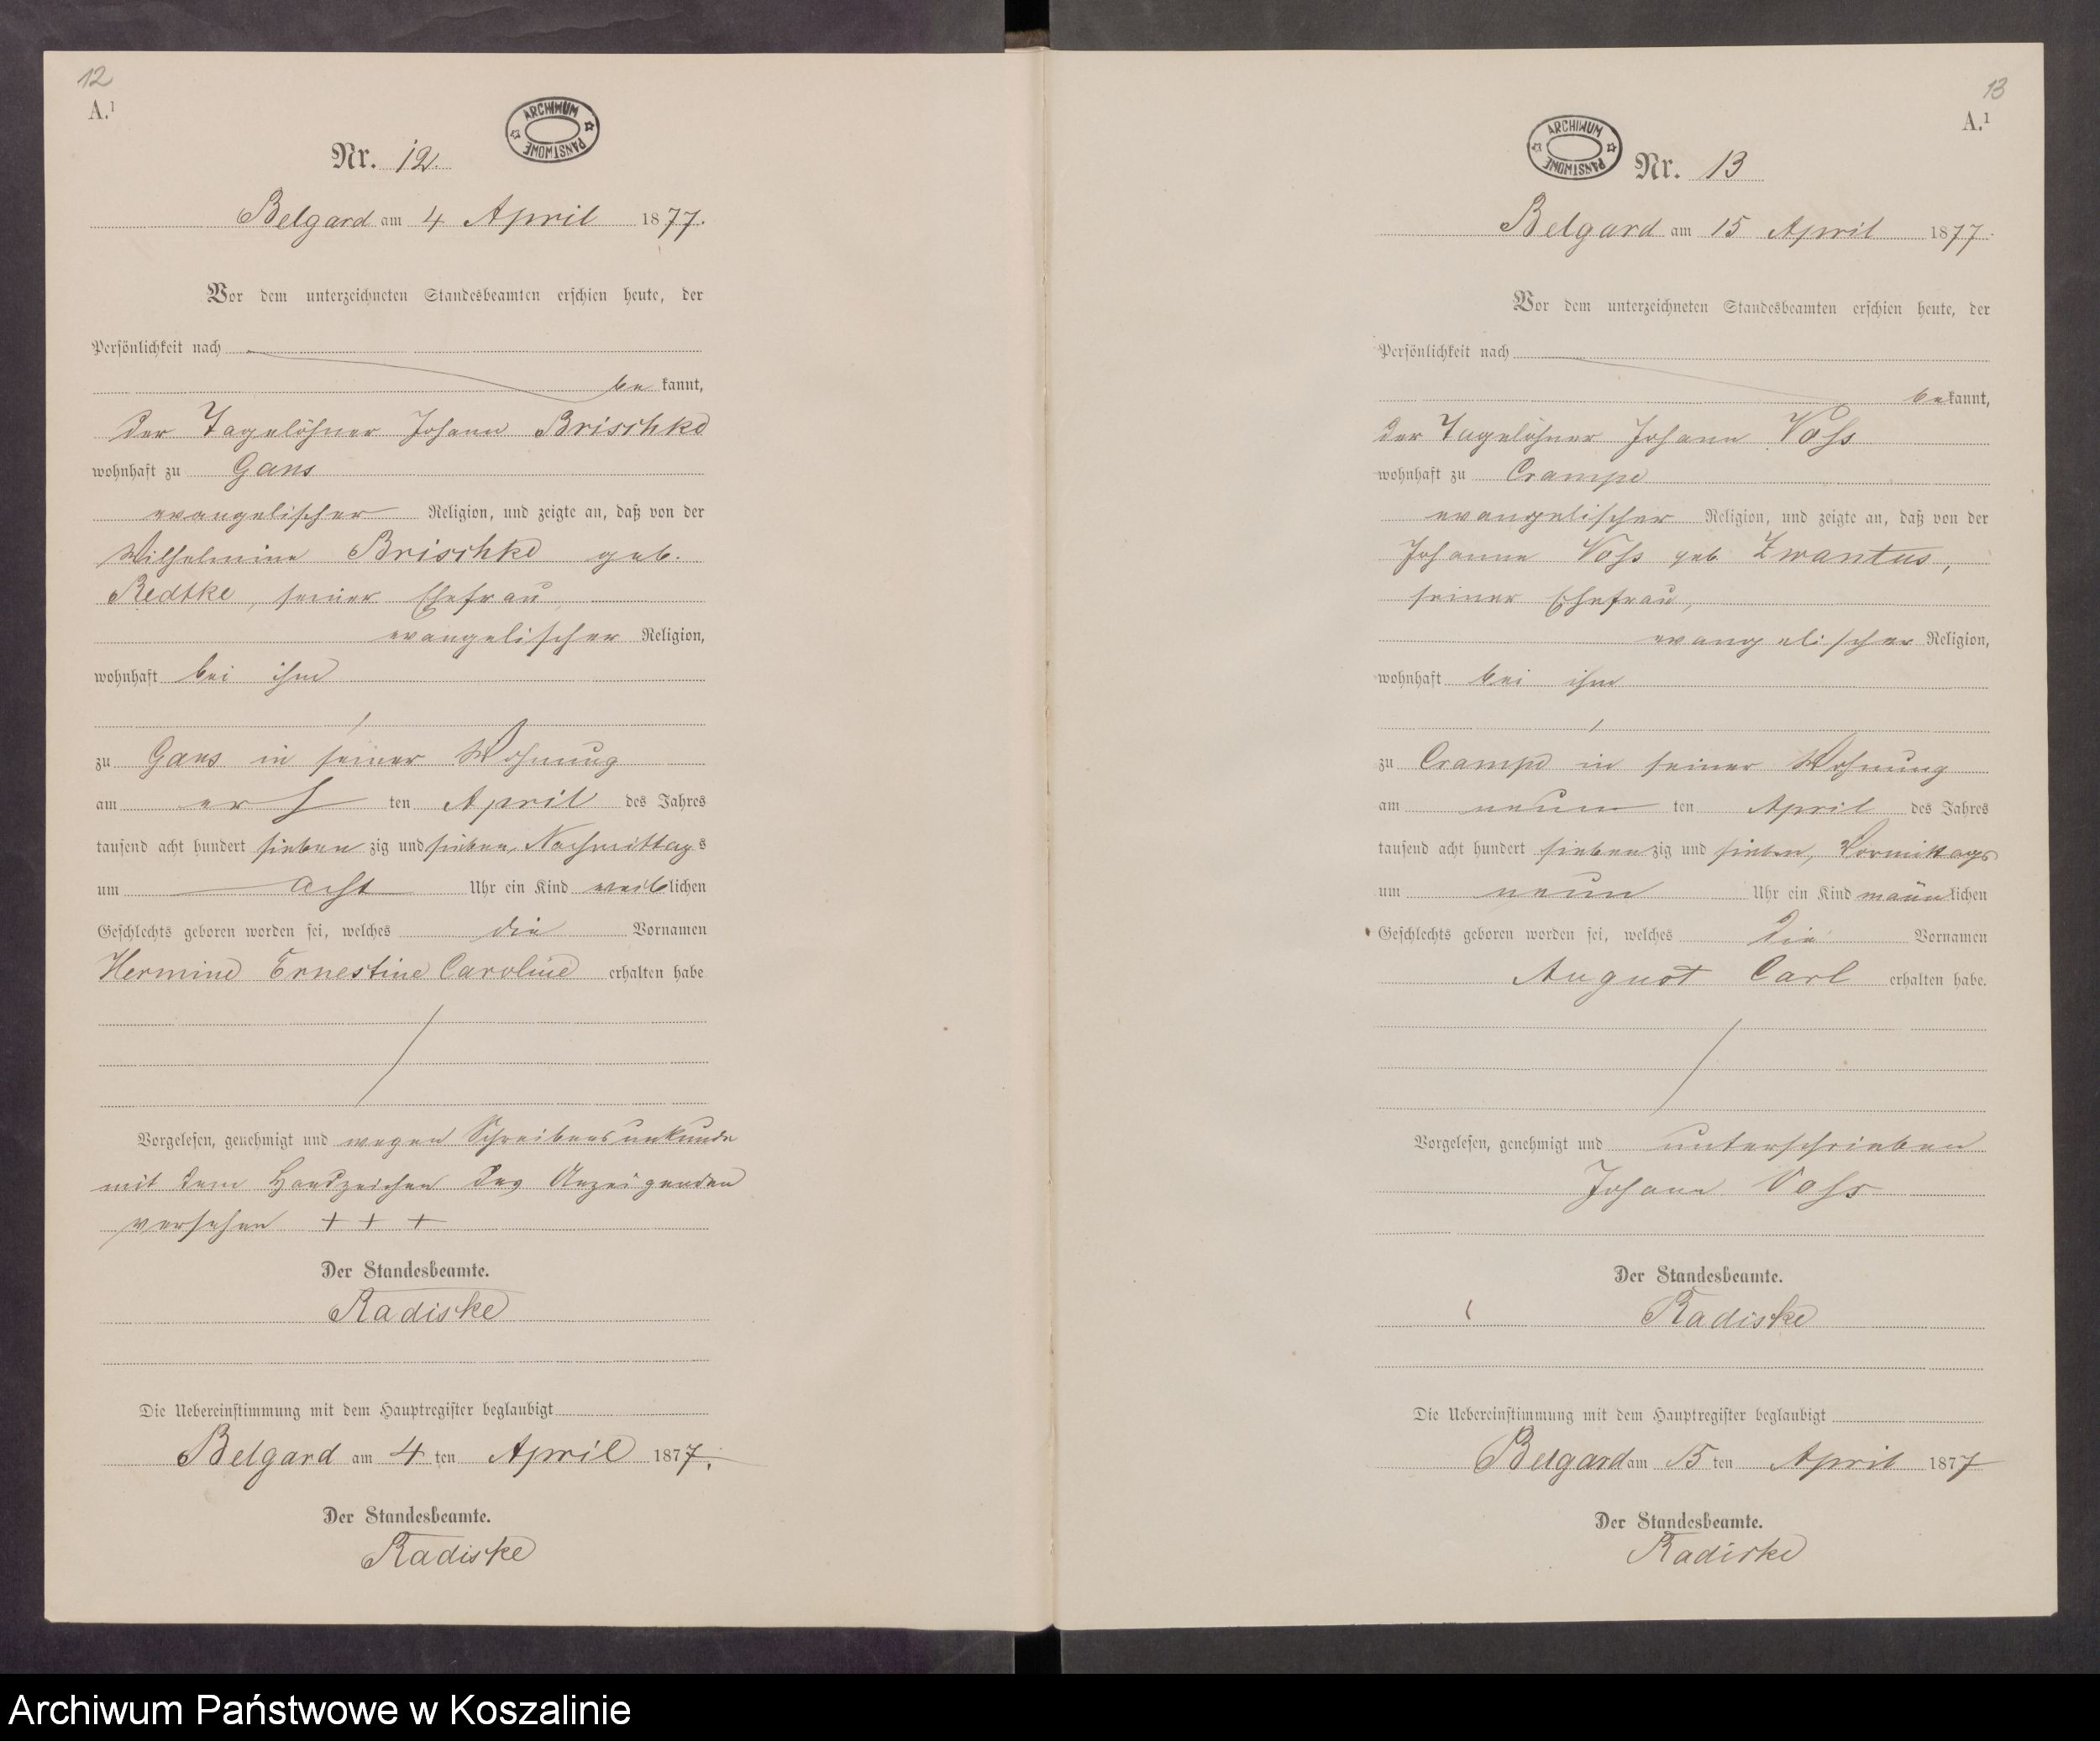 12
A.¹
ARCHIWUM PAŃSTWOWE
Nr. 12.
Belgard am 4 April 1877.
Vor dem unterzeichneten Standesbeamten erschien heute, der
Persönlichkeit nach
be kannt,
der Tagelöhner Johann Brischke
wohnhaft zu Gans
evangelischer Religion, und zeigte an, daß von der
Wilhelmine Brischke geb.
Redtke, seiner Ehefrau,
evangelischer Religion,
wohnhaft bei ihm
zu Gans in seiner Wohnung
am ersten April des Jahres
tausend acht hundert sieben zig und sieben, Nachmittags
um acht Uhr ein Kind weiblichen
Geschlechts geboren worden sei, welches die Vornamen
Hermine Ernestine Caroline erhalten habe
Vorgelesen, genehmigt und wegen Schreibensunkunde
mit dem Handzeichen des Anzeigenden
versehen + + +
Der Standesbeamte.
Radiske
Die Uebereinstimmung mit dem Hauptregister beglaubigt
Belgard am 4 ten April 1877.
Der Standesbeamte.
Radiske
13
A.¹
ARCHIWUM PAŃSTWOWE
Nr. 13
Belgard am 15 April 1877.
Vor dem unterzeichneten Standesbeamten erschien heute, der
Persönlichkeit nach
bekannt,
der Tagelöhner Johann Voss
wohnhaft zu Crampe
evangelischer Religion, und zeigte an, daß von der
Johanne Voss geb Zwantus,
seiner Ehefrau,
evangelischer Religion,
wohnhaft bei ihm
zu Crampe in seiner Wohnung
am neun ten April des Jahres
tausend acht hundert siebenzig und sieben, Vormittags
um neun Uhr ein Kind männlichen
Geschlechts geboren worden sei, welches die Vornamen
August Carl erhalten habe.
Vorgelesen, genehmigt und unterschrieben
Johann Voss
Der Standesbeamte.
Radiske
Die Uebereinstimmung mit dem Hauptregister beglaubigt
Belgard am 15 ten April 1877
Der Standesbeamte.
Radiske
Archiwum Państwowe w Koszalinie